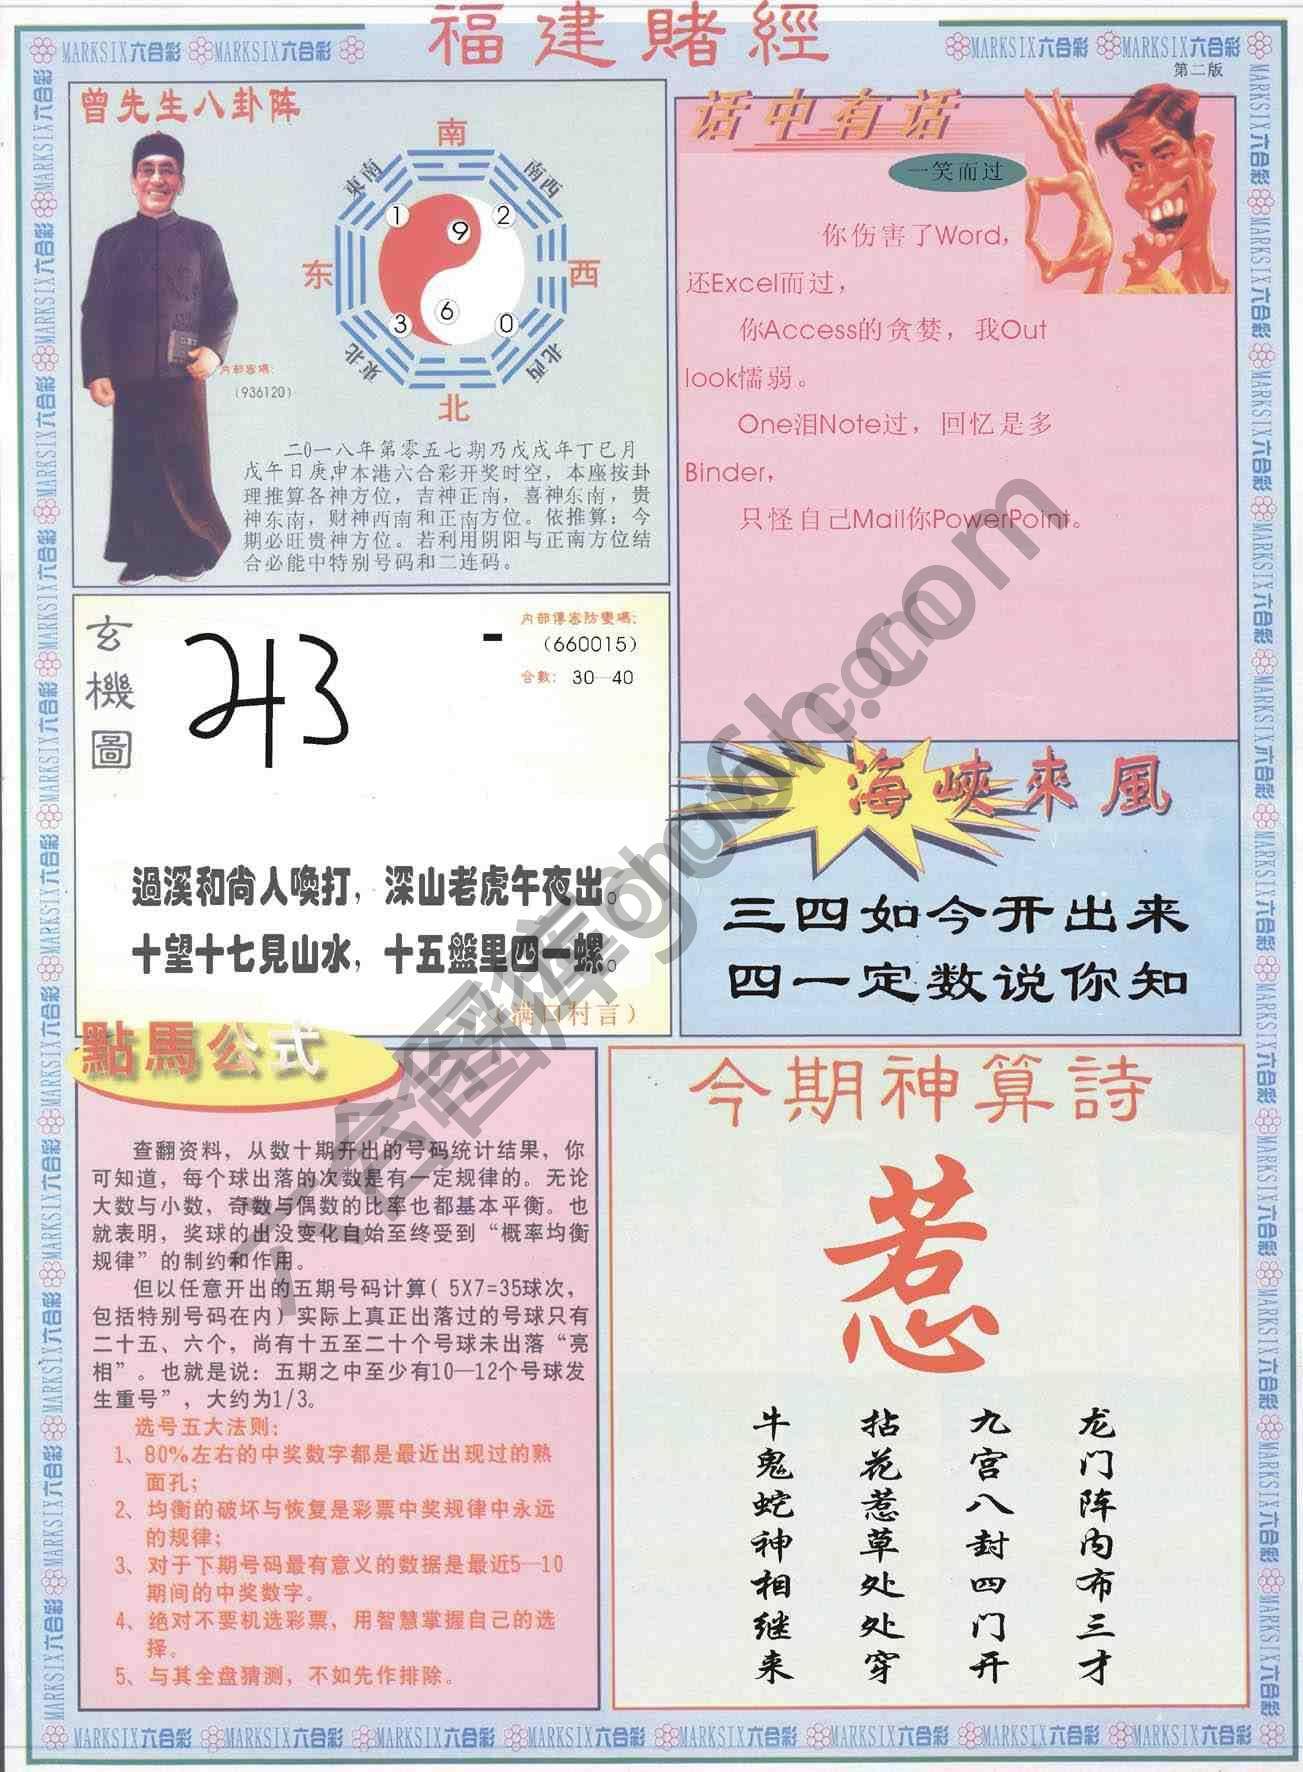 福建賭經
MARKSIX六合彩 MARKSIX六合彩 MARKSIX六合彩 MARKSIX六合彩
第二版
曾先生八卦阵
南
東南
南西
1
9
2
东
西
3
6
0
東北
北西
北
内部密碼:
(936120)
二0一八年第零五七期乃戊戌年丁巳月
戊午日庚申本港六合彩开奖时空，本座按卦
理推算各神方位，吉神正南，喜神东南，贵
神东南，财神西南和正南方位。依推算：今
期必旺贵神方位。若利用阴阳与正南方位结
合必能中特别号码和二连码。
话中有话
一笑而过
你伤害了Word，
还Excel而过，
你Access的贪婪，我Out
look懦弱。
One泪Note过，回忆是多
Binder，
只怪自己Mail你PowerPoint。
玄機圖
内部傳密防變碼:
(660015)
合數: 30—40
過溪和尚人喚打，深山老虎午夜出。
十望十七見山水，十五盤里四一螺。
（满口村言）
海峽來風
三四如今开出来
四一定数说你知
點馬公式
查翻资料，从数十期开出的号码统计结果，你
可知道，每个球出落的次数是有一定规律的。无论
大数与小数，奇数与偶数的比率也都基本平衡。也
就表明，奖球的出没变化自始至终受到“概率均衡
规律”的制约和作用。
但以任意开出的五期号码计算( 5X7=35球次，
包括特别号码在内) 实际上真正出落过的号球只有
二十五、六个，尚有十五至二十个号球未出落“亮
相”。也就是说：五期之中至少有10—12个号球发
生重号”，大约为1/3。
选号五大法则:
1、80%左右的中奖数字都是最近出现过的熟
面孔;
2、均衡的破坏与恢复是彩票中奖规律中永远
的规律;
3、对于下期号码最有意义的数据是最近5—10
期间的中奖数字。
4、绝对不要机选彩票，用智慧掌握自己的选
择。
5、与其全盘猜测，不如先作排除。
今期神算詩
惹
龙门阵内布三才
九宫八封四门开
拈花惹草处处穿
牛鬼蛇神相继来
MARKSIX六合彩 MARKSIX六合彩 MARKSIX六合彩 MARKSIX六合彩 MARKSIX六合彩 MARKSIX六合彩 MARKSIX六合彩 MARKSIX六合彩